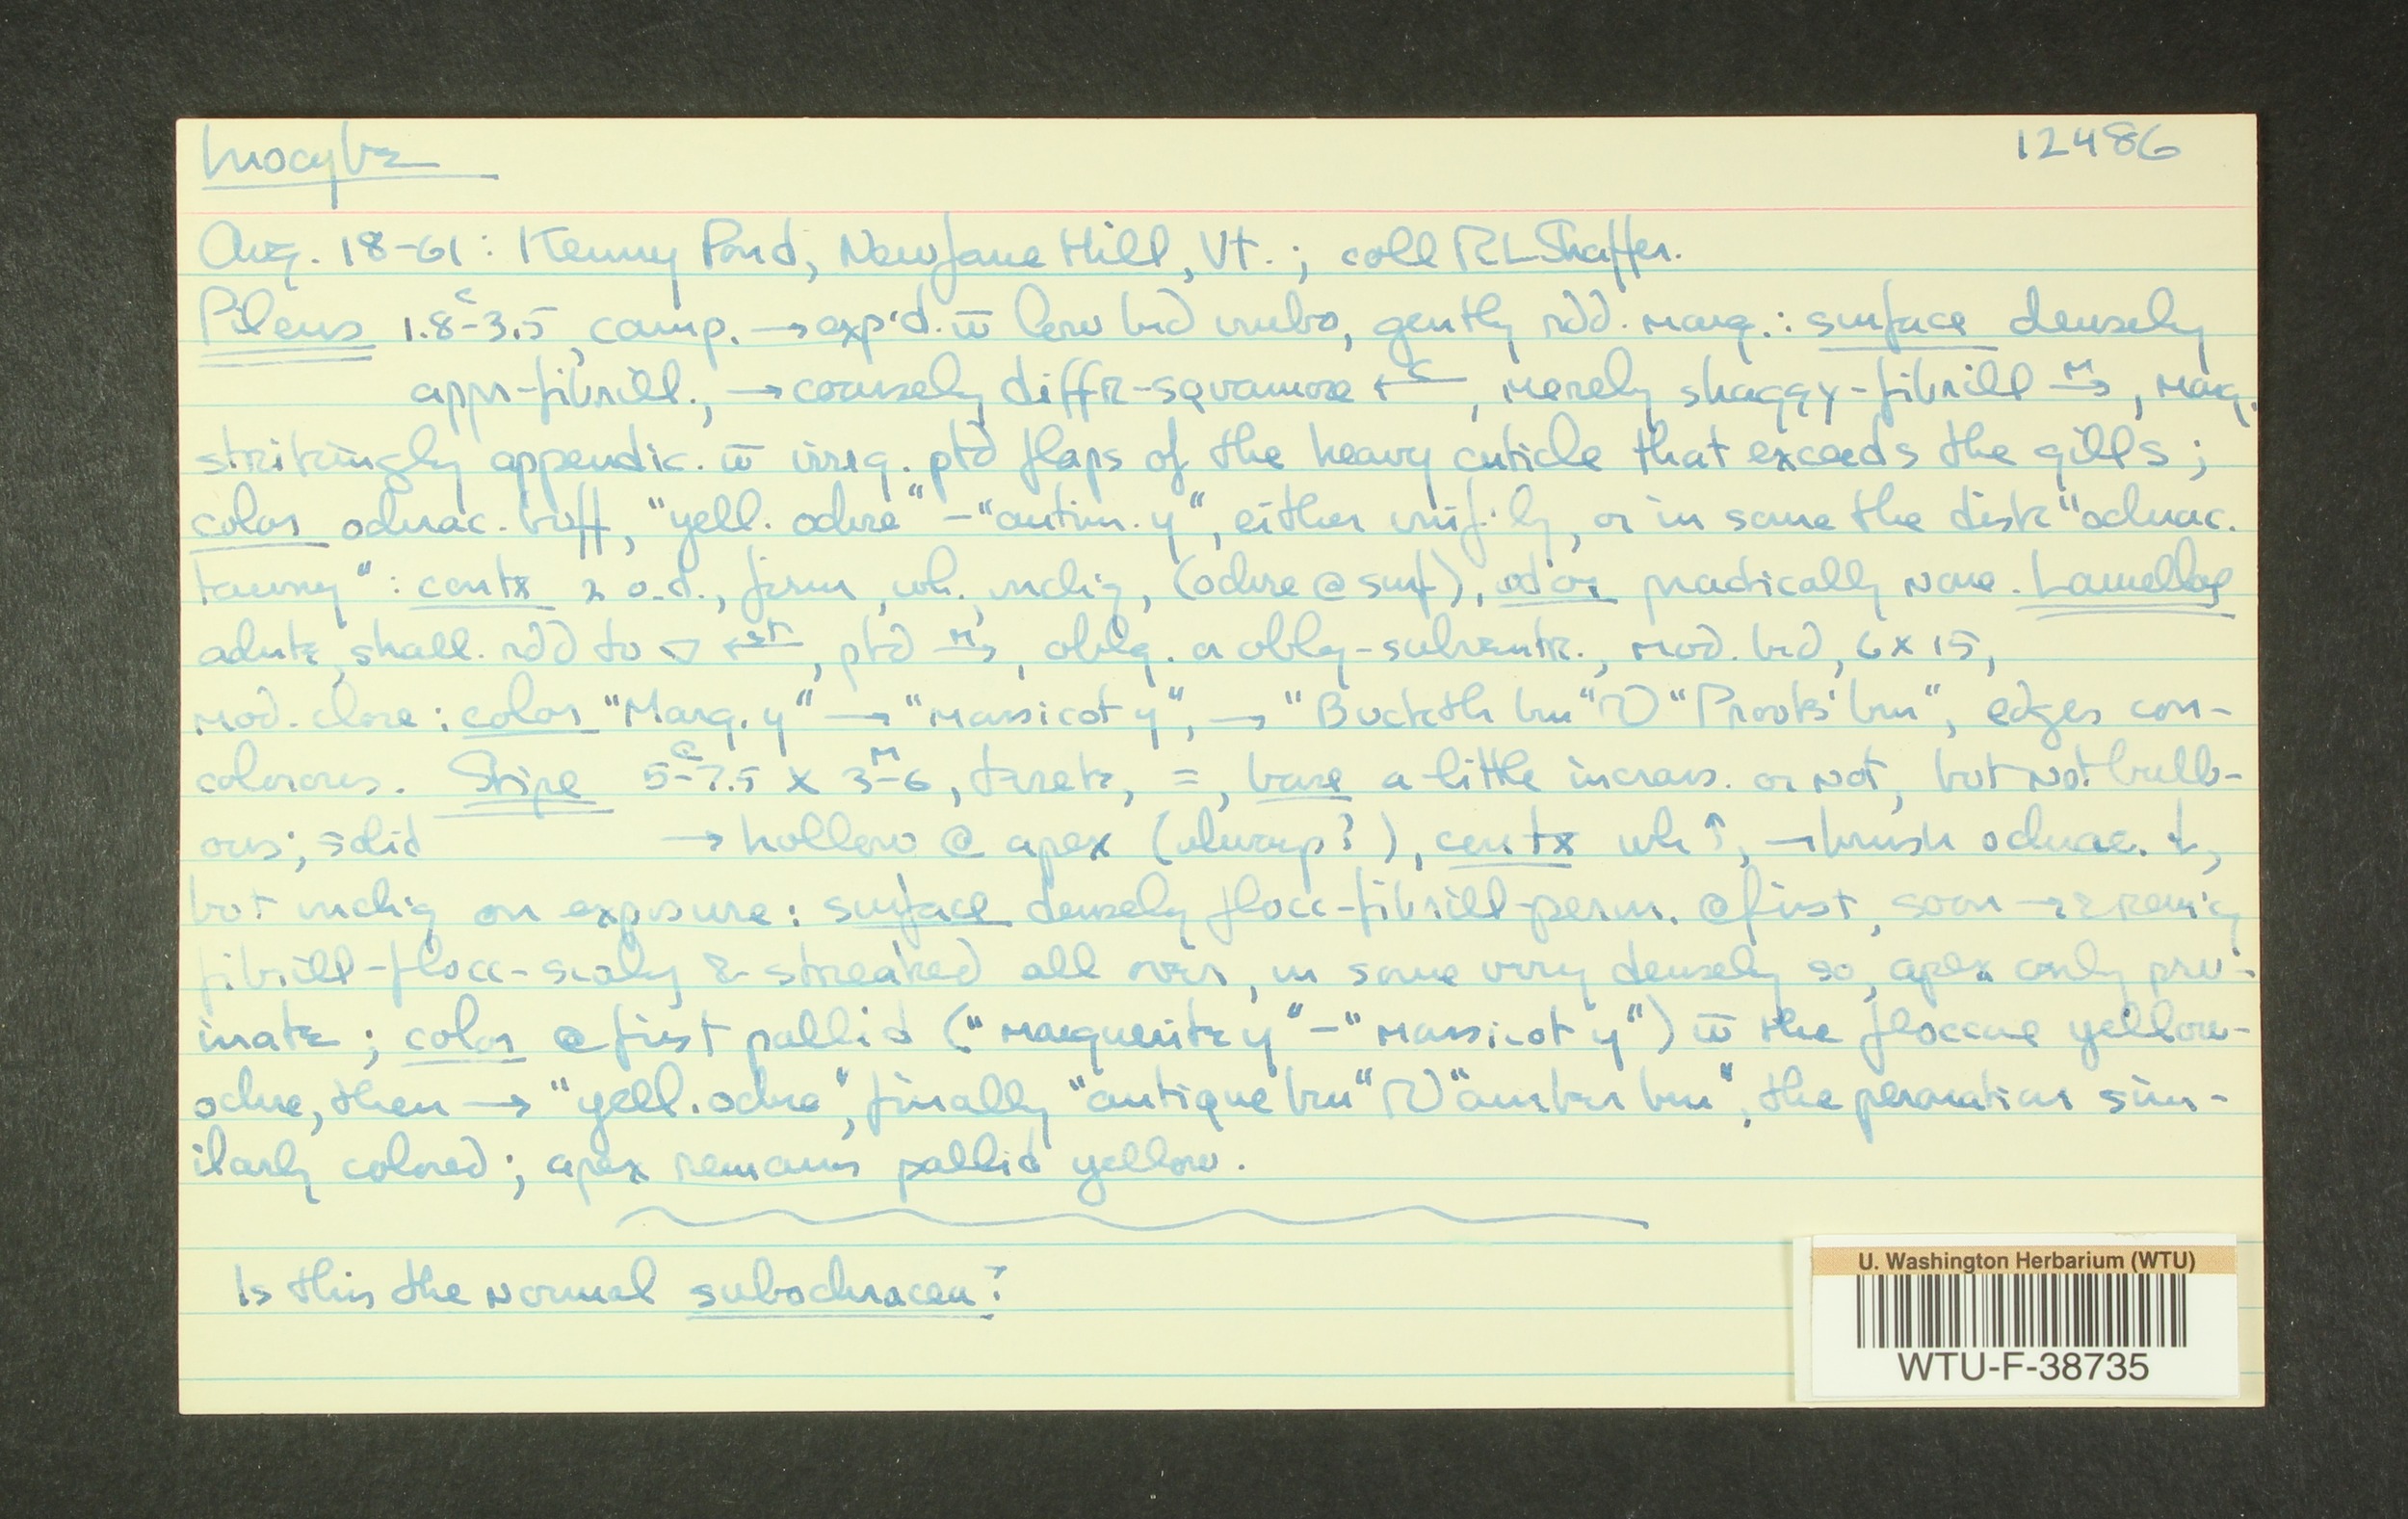 Inocybe
12486
Aug. 18-61: Kenny Pond, Newfane Hill, Vt.; coll RL Shaffer.
Pileus 1.8-3.5 c, camp. → exp'd. w̄ low brd umbo, gently rdd. marg.: surface densely
appr-fibrill., → coarsely diffr-squamose ←C, merely shaggy-fibrill M→, marg.
strikingly appendic. w̄ irreg. ptd flaps of the heavy cuticle that exceeds the gills;
color ochrac. buff, "yell. ochre" - "antim. y", either unif'ly, or in some the disk "ochrac.
tawny": contx firm, wh., unchg, (ochre @ surf), odor practically none. Lamellae
adnte, shall. rdd to ▽ ←st, ptd M→, oblg. or oblg-subventr., mod. brd, 6 x 15,
mod. close: color "Marg. y" → "massicot y", → "Buckth brn" "Prouts' brn", edges con-
colorous. Stipe 5-7.5 c x 3-6 M, terete, =, base a little incrass. or not, but not bulb-
ous; solid → hollow @ apex ( ), contx wh ↑, → brnsh ochrac. ↓,
but unchg on exposure: surface densely flocc-fibrill-peron. @ first, soon →
fibrill-flocc-scaly & streaked all over, in some very densely so, apex only pru-
inate; color @ first pallid ("marguerite y" - "massicot y") w̄ the floccae yellow-
ochre, then → "yell. ochre", finally "antique brn" "amber brn", the peronation sim-
ilarly colored; apex remains pallid yellow.
Is this the normal subochracea?
U. Washington Herbarium (WTU)
WTU-F-38735